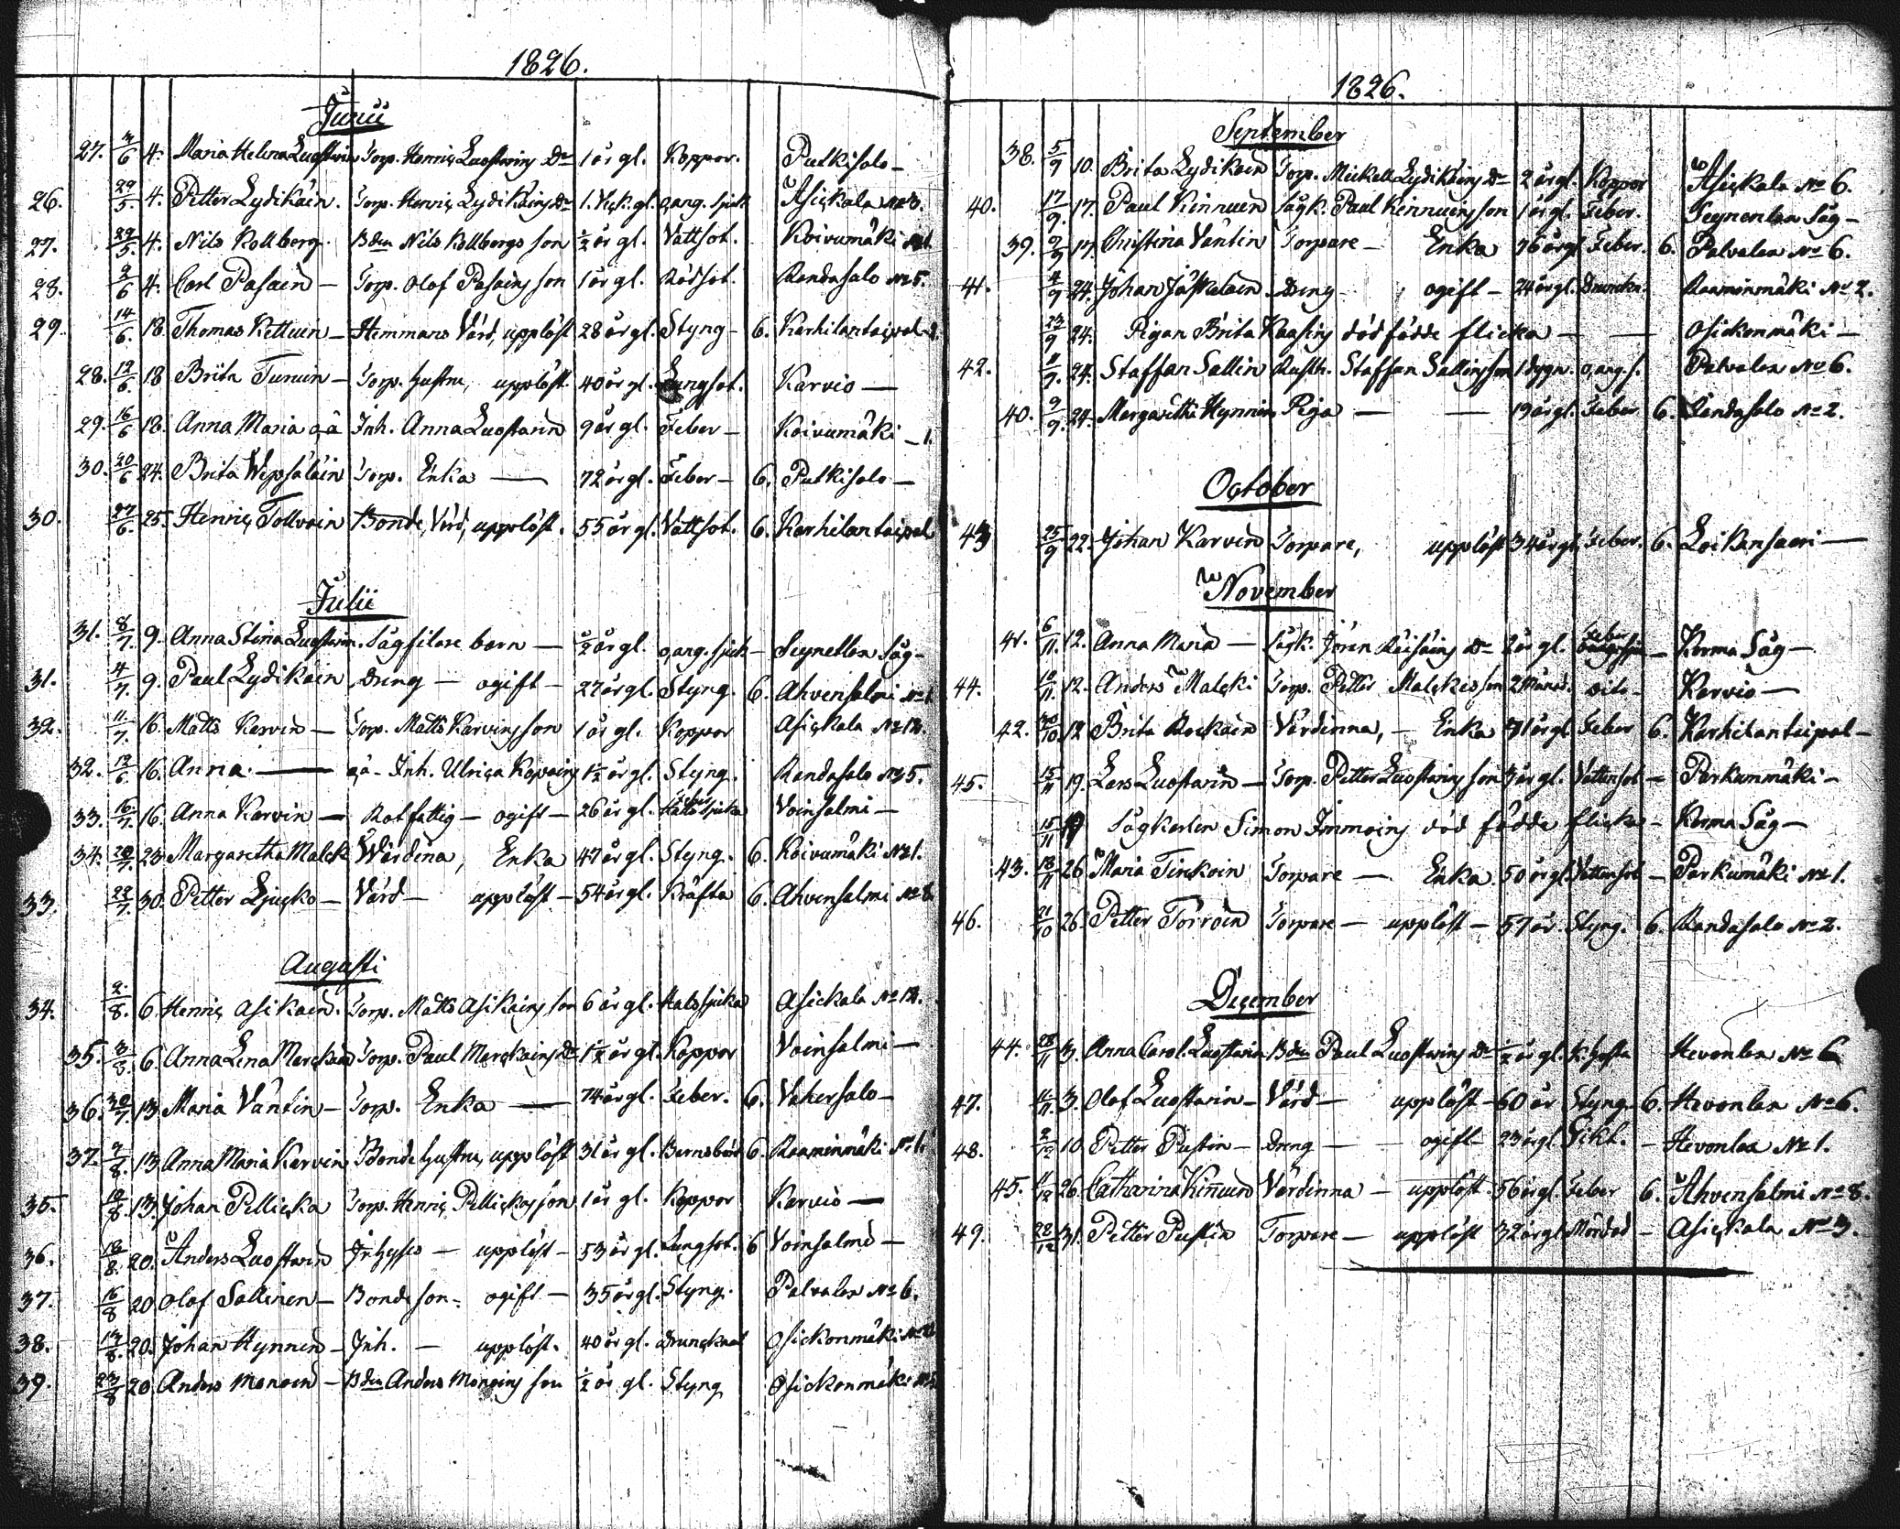 1826.
Junii
27. 3/6 4. Maria Helena Luostarin Torp. Henric Luostarins Dr 1 år gl. Koppor. Putkisalo —
26. 29/5. 4. Petter Lydikäin. Torp. Henric Lydikäins 1. gl. o,ang. sjuk Asickala No 3.
27. 29/5. 4. Nils Kollberg. Bden Nils Kollbergs son ½ år gl. Vattsot. Koivumäki No 1.
28. 2/6 4. Carl Pasain — Torp. Olof Pasains son 1 år gl. Rödsot. Randasalo No 5.
29. 14/6. 18. Thomas Kettuin — Hemmans Värd, upplöst 28 år gl. Styng — 6. Karhilantaipal
28. 12/6 18 Brita Turuin — Torp. hustru, upplöst 40 år gl. Lungsot. Karvio —
29. 16/6 18. Anna Maria o,ä Inh. Anna Luostarin 9 år gl. Feber — Koivumäki — 1.
30. 20/6 24. Brita Wepsäläin Torp. Enka — 72 år gl. Feber — 6. Putkisalo —
30. 27/6. 25. Henric Tollvain Bonde, Värd, upplöst. 55 år gl. Vattsot. 6. Karhilantaipal
Julii
31. 8/7. 9. Anna Stina Luostarin. Sågfilare barn — ½ år gl. o,ang. sjuk — Seynetlex Såg —
31. 4/7. 9. Paul Lydikäin Dreng — ogift — 27 år gl. Styng. 6. Ahvensalmi No 1.
32. 11/7. 16. Matts Karvin — Torp. Matts Karvins son 1 år gl. Koppor Asickala No 12.
32. 12/6 16. Anna — o,ä — Inh. Ulrica Kopoins 1½ år gl. Styng. Randasalo No 5.
33. 16/7. 16. Anna Karvin — Rotfattig — ogift — 26 år gl. Voinsalmi —
34. 20/7. 23. Margaretha Malck Wärdina, Enka 47 år gl. Styng. 6. Koivumäki No 1.
33. 22/7. 30. Petter Ljucko — Värd — upplöst — 54 år gl. Kräfta 6. Ahvensalmi No 8.
Augusti
34. 2/8. 6. Henric Asikain. Torp. Matts Asikains son 6 år gl. Halssjuka Asickala No 12.
35. 3/8. 6. Anna Lena Marckain Torp. Paul Marckains Dr 1½ år gl. Koppor Voinsalmi —
36. 30/7. 13. Maria Väntin — Torp. Enka — 74 år gl. Feber. 6. Vahersalo —
37. 7/8. 13. Anna Maria Karvin Bonde hustru, upplöst 31 år gl. Barnsbörd 6. Raaminmäki No 1.
35. 10/8. 13. Johan Pellicka Torp. Henric Pellickas son 1 år gl. Koppor Karvio —
36. 18/8. 20. Anders Luostarin Inhyses — upplöst — 53 år gl. Lungsot. 6 Voinsalmi —
37. 16/8 20 Olof Sallinen — Bonde son — ogift — 35 år gl. Styng. Palvalax No 6.
38. 17/8. 20. Johan Hynnin — Inh. — upplöst. 40 år gl. Druncknat Osickonmäki No 2.
39. 23/8 20. Anders Monoin — Bden Anders Monoins son ½ år gl. Styng Osickonmäki
1826.
September
38. 5/9 10. Brita Lydikäin Torp. Mickell Lydikäins Dr 2 år gl. Koppor Asickala No 6.
40. 17/9. 17. Paul Kinnuin Sågk. Paul Kinnuins son 1 år gl. Feber. Seynenlax Såg —
39. 9/9 17. Christina Väntin Torpare — Enka 76 år gl. Feber. 6. Palvalax No 6.
41. 4/9 24. Johan Jäskeläin Dreng — ogift — 24 år gl. Raaminmäki No 2.
23/9 24. Pigan Brita Kaasins dödfödde flicka — — Osickonmäki —
42. 24. Staffan Sallin Rusth. Staffan Sallins son 1 dygn. o,ang s. Palvalax No 6.
40. 9/9. 24. Margaretha Hynnin Piga — — 19 år gl. Feber 6. Randasalo No 2.
October
43 25/9 22. Johan Karvin Torpare, upplöst 34 år gl. Feber. 6. Loikansaari —
November
41. 6/11. 12. Anna Maria — Sågk. Jören Räisäins Dr 2 år gl. Feber — Kerma Såg —
44. 10/11 12. Anders Malcki Torp. Petter Malckis son 2 Månad. dito — Karvio —
42. 30/10 12 Brita Rockain Värdinna, — Enka 71 år gl. Feber 6. Karhilantaipal —
45. 15/11 19. Lars Luostarin — Torp. Petter Luostarins son 3 år gl. Vattensot — Parkumäki —
15/11 19 Sågkarlen Simon Immoins död födde flicka — Kerma Såg —
43. 18/11 26 Maria Tirckoin Torpare — Enka. 50 år gl. Vattensot — Parkumäki No 1.
46. 21/10 26. Petter Torroin Torpare — upplöst — 57 år. Styng. 6. Randasalo No 2.
December
44. 28/11 3. Anna Carol. Luostarin Bden Paul Luostarins Dr ½ år gl. K.hosta Hevonlax No 6
47. 3. Olof Luostarin — Värd — upplöst — 60 år Styng 6. Hevonlax No 6.
48. 2/12 10. Petter Pustin — Dreng — ogift — 23 år gl. Vikt. — Hevonlax No 1.
45. 26. Catharina Kinnuin Värdinna — upplöst — 56 år gl. Feber 6. Ahvensalmi No 8.
49. 22/12 31. Petter Pustin Torpare — upplöst 32 år gl. Mördad — Asickala No 3.